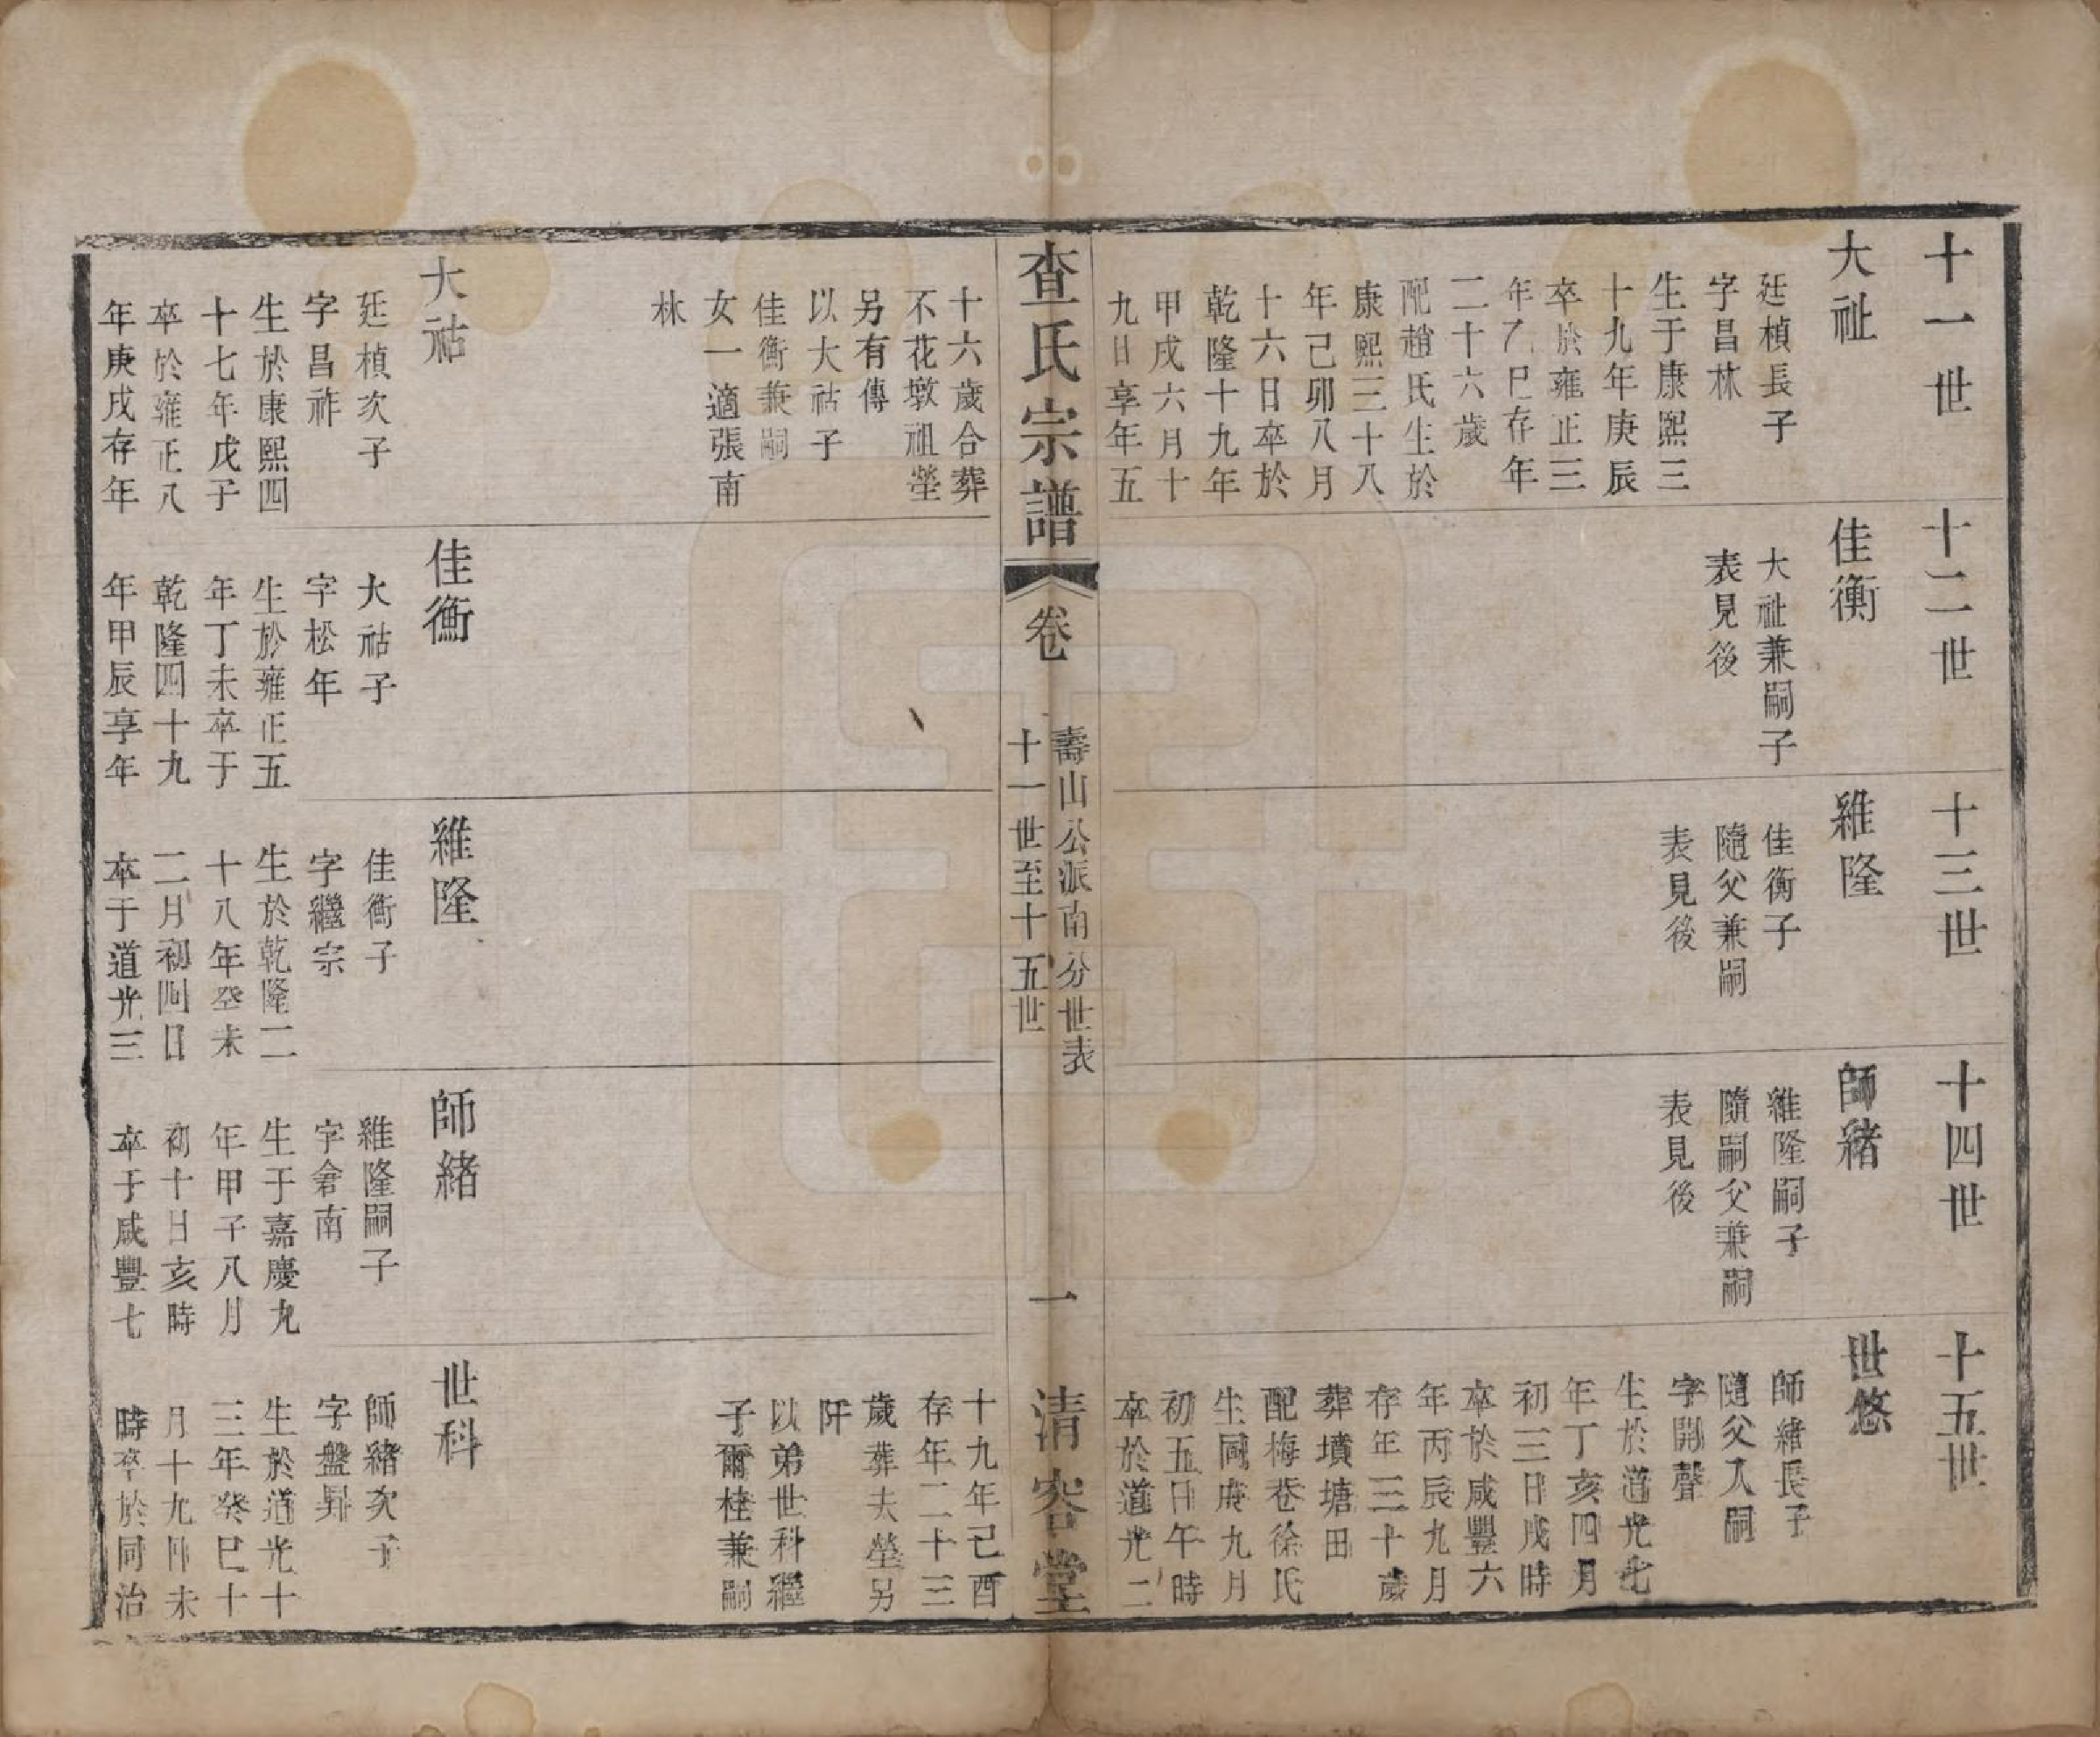 十一世
大祉
廷楨長子
字昌林
生于康熙三
十九年庚辰
卒於雍正三
年乙巳存年
二十六歲
配趙氏生於
康熙三十八
年己卯八月
十六日卒於
乾隆十九年
甲戌六月十
九日享年五
十二世
佳衡
大祉兼嗣子
表見後
十三世
維隆
佳衡子
隨父兼嗣
表見後
十四世
師緒
維隆嗣子
隨嗣父兼嗣
表見後
十五世
世悠
師緒長子
隨父入嗣
字開聲
生於道光七
年丁亥四月
初三日戌時
卒於咸豐六
年丙辰九月
存年三十歲
葬墳塘田
配梅巷徐氏
生同庚九月
初五日午時
卒於道光二
查氏宗譜
卷
壽山公派南分世表
十一世至十五世
一
清容堂
十六歲合葬
不花墩祖塋
另有傳
以大祜子
佳衡兼嗣
女一適張南
林
十九年己酉
存年二十三
歲葬夫塋另
阡
以弟世科繼
子爾桂兼嗣
大祜
廷楨次子
字昌祚
生於康熙四
十七年戊子
卒於雍正八
年庚戌存年
佳衡
大祜子
字松年
生於雍正五
年丁未卒于
乾隆四十九
年甲辰享年
維隆
佳衡子
字繼宗
生於乾隆二
十八年癸未
二月初四日
卒于道光三
師緒
維隆嗣子
字畣南
生于嘉慶九
年甲子八月
初十日亥時
卒于咸豐七
世科
師緒次子
字盤昇
生於道光十
三年癸巳十
月十九日未
時卒於同治